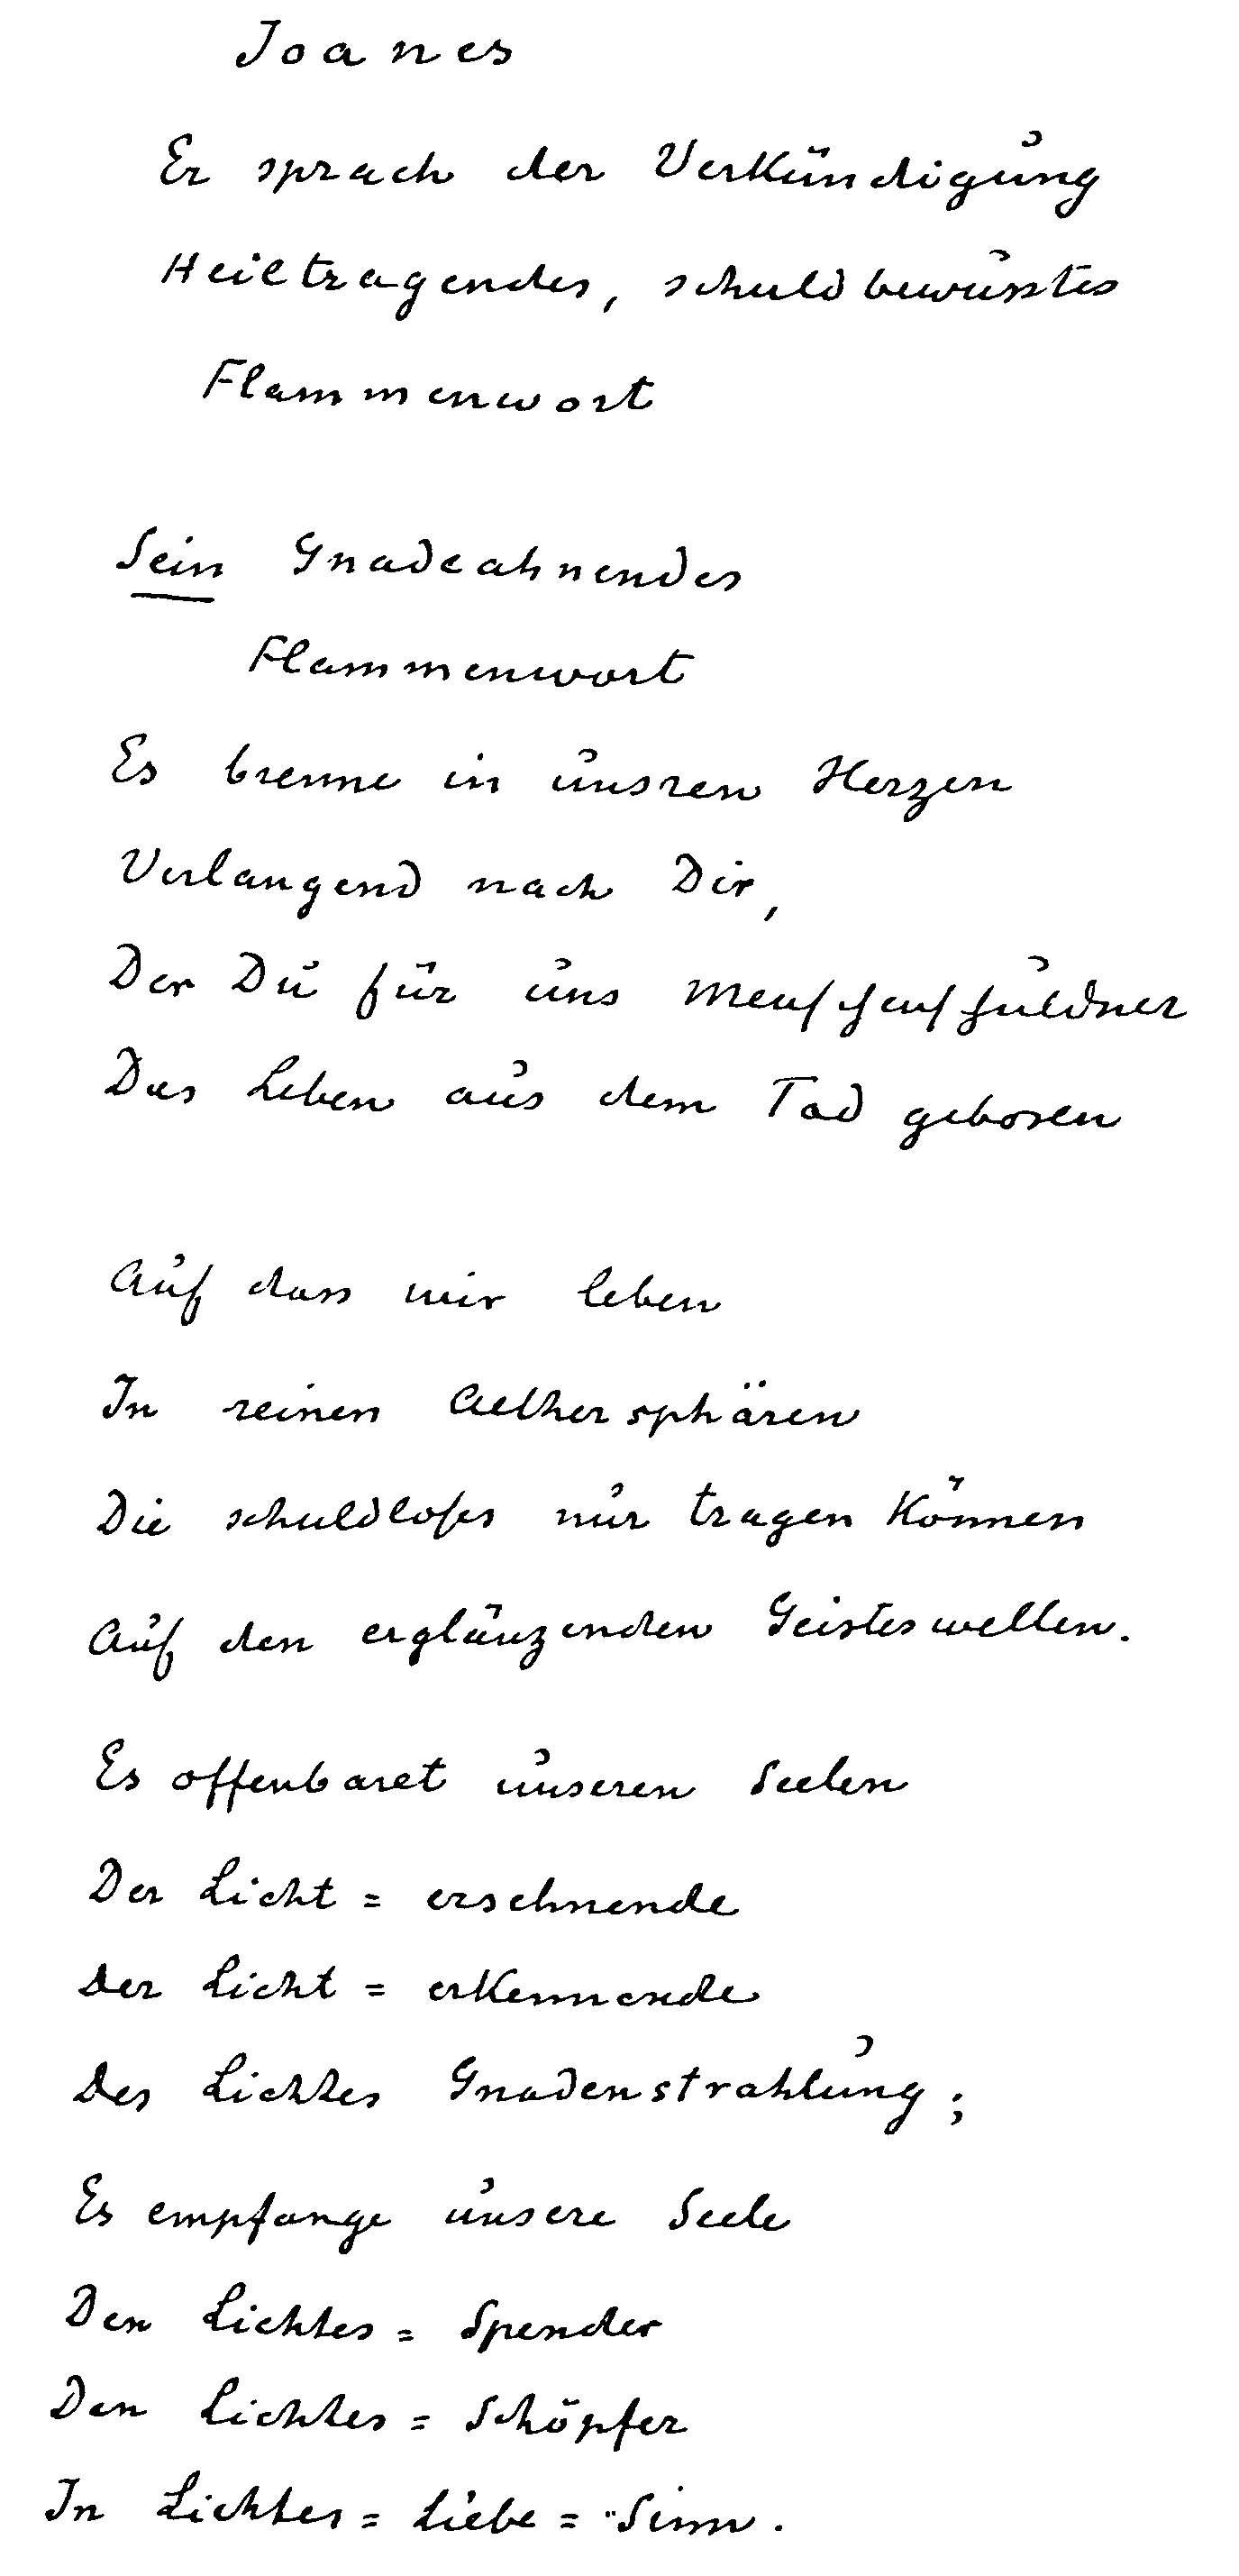 Joanes
Er sprach der Verkündigung
Heiltragendes, schuldbewusstes
Flammenwort
Sein Gnadeahnendes
Flammenwort
Es brenne in unsren Herzen
Verlangend nach Dir,
Der Du für uns Menschenschuldner
Das Leben aus dem Tod geboren
Auf dass wir leben
In reinen Aethersphären
Die schuldloses nur tragen können
Auf den erglänzenden Geisteswellen.
Es offenbaret unseren Seelen
Der Licht = ersehnende
Der Licht = erkennende
Des Lichtes Gnadenstrahlung;
Es empfange unsere Seele
Den Lichtes = Spender
Den Lichtes = Schöpfer
In Lichtes = Liebe = Sinn.